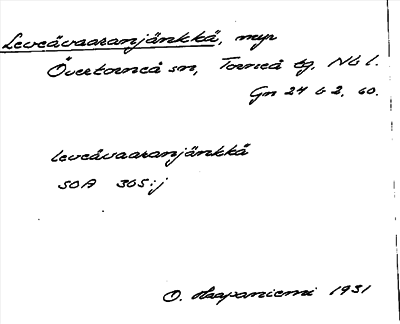 Leveävaaranjänkkä, myr
Övertorneå sn, Torneå tg. Nb l.
Gn 24 b 2, 60.
leveävaaranjänkkä
SOA 305:j
O. Haapaniemi 1931